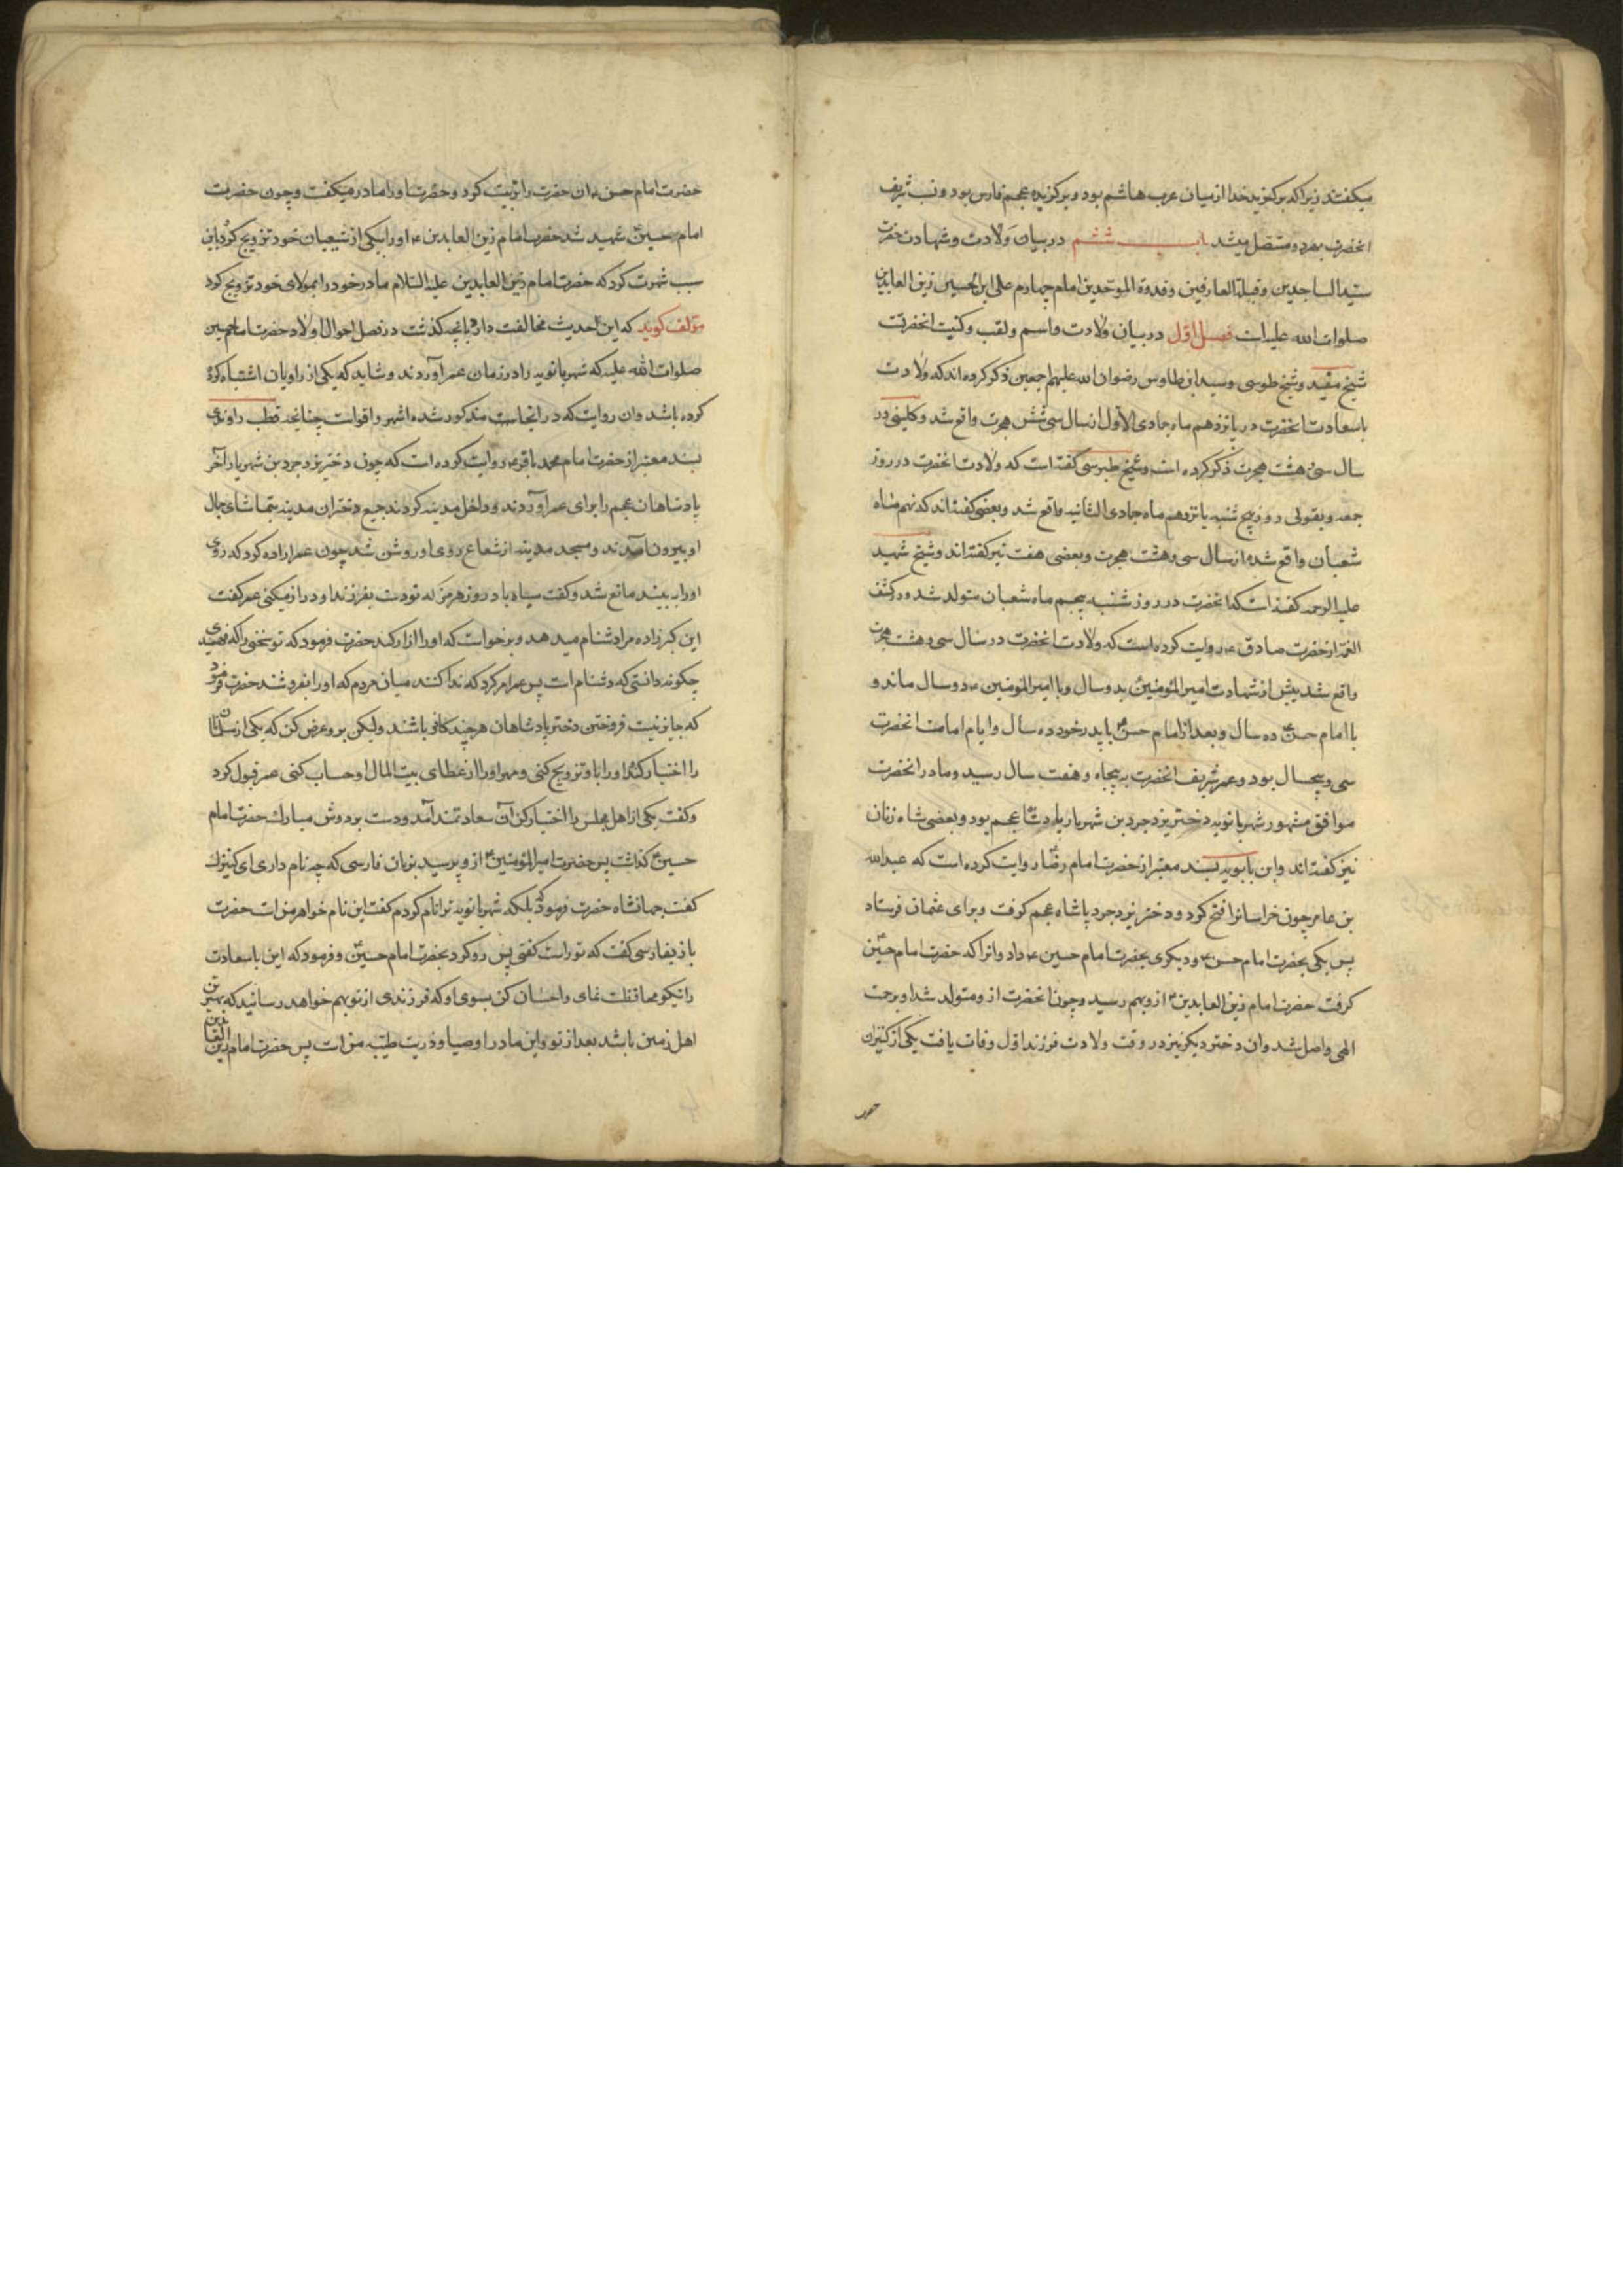 میکفتند زیرا که برکزید خدا از میان عرب هاشم بود و برکزیده عجم فارس بود و نسب شریف
انحضرت بهر دو متصل میشد باب ششم در بیان ولادت و شهادت حضرت
سید الساجدین و قبلة العارفین و قدوة الموحدین امام چهارم علی ابن الحسین زین العابدین
صلوات الله علیه است فصل اول در بیان ولادت و اسم و لقب و کنیت انحضرت
شیخ مفید و شیخ طوسی و سید ابن طاوس رضوان الله علیهم اجمعین ذکر کرده اند که ولادت
باسعادت انحضرت در پانزدهم ماه جمادی الاول از سال سی شش هجرت واقع شد و کلینی در
سال سی هشت هجرت ذکر کرده است و شیخ طبرسی کفته است که ولادت انحضرت در روز
جمعه و بقولی روز پنج شنبه پانزدهم ماه جمادی الثانیه واقع شد و بعضی کفته اند که نهم ماه
شعبان واقع شده از سال سی و هشت هجرت و بعضی هفت نیز کفته اند و شیخ شهید
علیه الرحمه کفته است که انحضرت در روز شنبه پنجم ماه شعبان متولد شد و در کشف
الغمه از حضرت صادق ع روایت کرده است که ولادت انحضرت در سال سی و هشت هجرت
واقع شد پیش از شهادت امیر المؤمنین بدو سال و با امیر المؤمنین ع دو سال ماند و
با امام حسن ع ده سال و بعد از امام حسن ع با پدر خود ده سال و ایام امامت انحضرت
سی و پنجسال بود و عمر شریف انحضرت به پنجاه و هفت سال رسید و مادر انحضرت
موافق مشهور شهربانویه دختر یزدجرد بن شهریار پادشاه عجم بود و بعضی شاه زنان
نیز کفته اند و ابن بابویه بسند معتبر از حضرت امام رضا روایت کرده است که عبدالله
بن عامر چون خراسانرا فتح کرد و دختر یزدجرد پاشاه عجم کرفت و برای عثمان فرستاد
پس یکی بحضرت امام حسن ع و دیکری بحضرت امام حسین ع داد و انرا که حضرت امام حسین
کرفت حضرت امام زین العابدین ع ازو بهم رسید و چون انحضرت ازو متولد شد او برحمت
الهی واصل شد و ان دختر دیکر نیز در وقت ولادت فرزند اول وفات یافت یکی از کنیزان
حضرت
حضرت امام حسن ع ان حضرت را تربیت کرد و حضرت او را مادر میکفت و چون حضرت
امام حسین ع شهید شد حضرت امام زین العابدین ع او را بیکی از شیعیان خود تزویج کرد باین
سبب شهرت کرد که حضرت امام زین العابدین علیه السلام مادر خود را بمولای خود تزویج کرد
مؤلف کوید که این حدیث مخالفت دارد بانچه کذشت در فصل احوال اولاد حضرت امام حسین
صلوات الله علیه که شهربانویه را در زمان عمر آوردند و شاید که یکی از راویان اشتباه کرده
کرده باشد و ان روایت که در انجاست مذکور شده اشهر و اقواست چنانچه قطب راوندی
بسند معتبر از حضرت امام محمد باقر ع روایت کرده است که چون دختر یزدجرد بن شهریار آخر
پادشاهان عجم را برای عمر آوردند و داخل مدینه کردند جمیع دختران مدینه بتماشای جمال
او بیرون آمدند و مسجد مدینه از شعاع روی او روشن شد چون عمر اراده کرد که روی
او را به بیند مانع شد و کفت سیاه باد روز هرمز که تو دست بفرزند او دراز میکنی عمر کفت
این کبرزاده مرا دشنام میدهد و برخواست که او را ازار کند حضرت فرمود که تو سخنی را که نفهمیدی
چکونه دانستی که دشنام است پس عمر امر کرد که ندا کنند میان مردم که او را بفروشند حضرت فرمود
که جایز نیست فروختن دختر پادشاهان هرچند کافر باشند ولیکن برو عرض کن که یکی از مسلمانان
را اختیار کند او را باو تزویج کنی و مهر او را از عطای بیت المال او حساب کنی عمر قبول کرد
و کفت یکی از اهل مجلس را اختیار کن آن سعادتمند آمد و دست بر دوش مبارک حضرت امام
حسین ع کذاشت پس حضرت امیر المؤمنین ع ازو پرسید بزبان فارسی که چه نام داری ای کنیزک
کفت جهانشاه حضرت فرمود که بلکه شهربانویه ترا نام کردم کفت این نام خواهر منست حضرت
باز بفارسی کفت که تو راست کفتی پس رو کرد بحضرت امام حسین ع و فرمود که این باسعادت
را نیکو محافظت نمای و احسان کن بسوی او که فرزندی از تو بهم خواهد رسانید که بهترین
اهل زمین باشد بعد از تو و این مادر اوصیا و ذریت طیبه من است پس حضرت امام زین العابدین